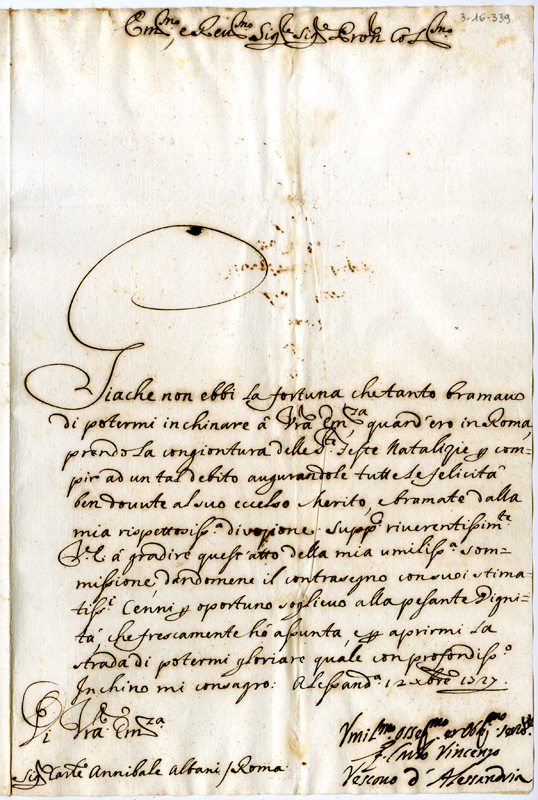 3-16-339
Em.mo, e Rev.mo Sig.re Sig.re Pron Col.mo
Giache non ebbi la fortuna che tanto bramavo
di potermi inchinare á Vra Em.za quand'ero in Roma,
prendo la congiontura delle S.te Feste Natalizie p com=
pir ad un tal debito augurandole tutte le felicitá
ben dovute al suo eccelso Merito, e bramate dalla
mia rispettosiss.a divozione. Supp.co riverentissim.te
V.E. á gradire quest'atto della mia umiliss.a som=
missione, dandomene il contrasegno con suoi stima=
tiss.i Cenni p oportuno soglievo alla pesante Digni=
tá, che frescamente hó assunta, e p aprirmi la
strada di potermi gloriare quale con profondiss.o
Inchino mi consagro: Alessand.a 12 Xbre 1727.
Di Vra Em.za
Umil.mo Oss.mo et Obl.mo Serv.e
F. Vincenzo
Vescovo d'Alessandria
Sig. Card.e Annibale Albani / Roma